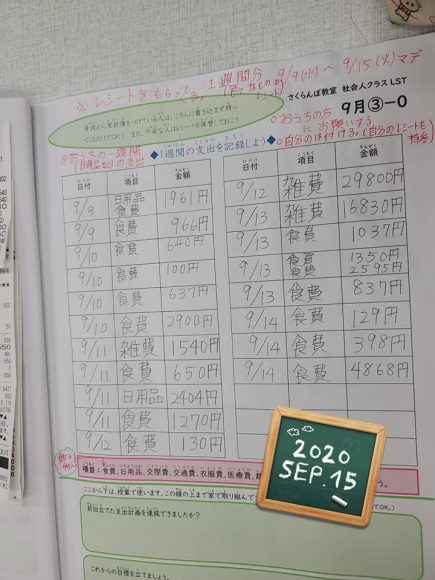 ※レシートをもらって 1週間分 9/9(水)～9/15(火)マデ
さくらんぼ教室 社会人クラスLST
9月③-0
くるだけでOK！また、不安な人はレシートを保管しておこう
○おうちの方にお願いする
○自分のは付ける。(自分のレシートも
◆1週間の支出を記録しよう◆
日付 項目 金額
9/9 日用品 食費 1961円
9/9 食費 966円
9/10 食費 640円
9/10 食費 100円
9/10 食費 637円
9/10 食費 2900円
9/11 雑費 1540円
9/11 食費 650円
9/11 日用品 2404円
9/11 食費 1270円
9/12 食費 130円
日付 項目 金額
9/12 雑費 29800円
9/13 雑費 16830円
9/13 食費 1037円
9/13 食費 1350円
食費 2595円
9/13 食費 837円
9/14 食費 129円
9/14 食費 398円
9/14 食費 4868円
項目：食費、日用品、交際費、交通費、衣服費、医療費、
ここから下は、授業で使います。この線の上まで家で取り組んで
前回立てた支出計画を達成できましたか？
これからの目標を立てましょう。
2020
SEP.15